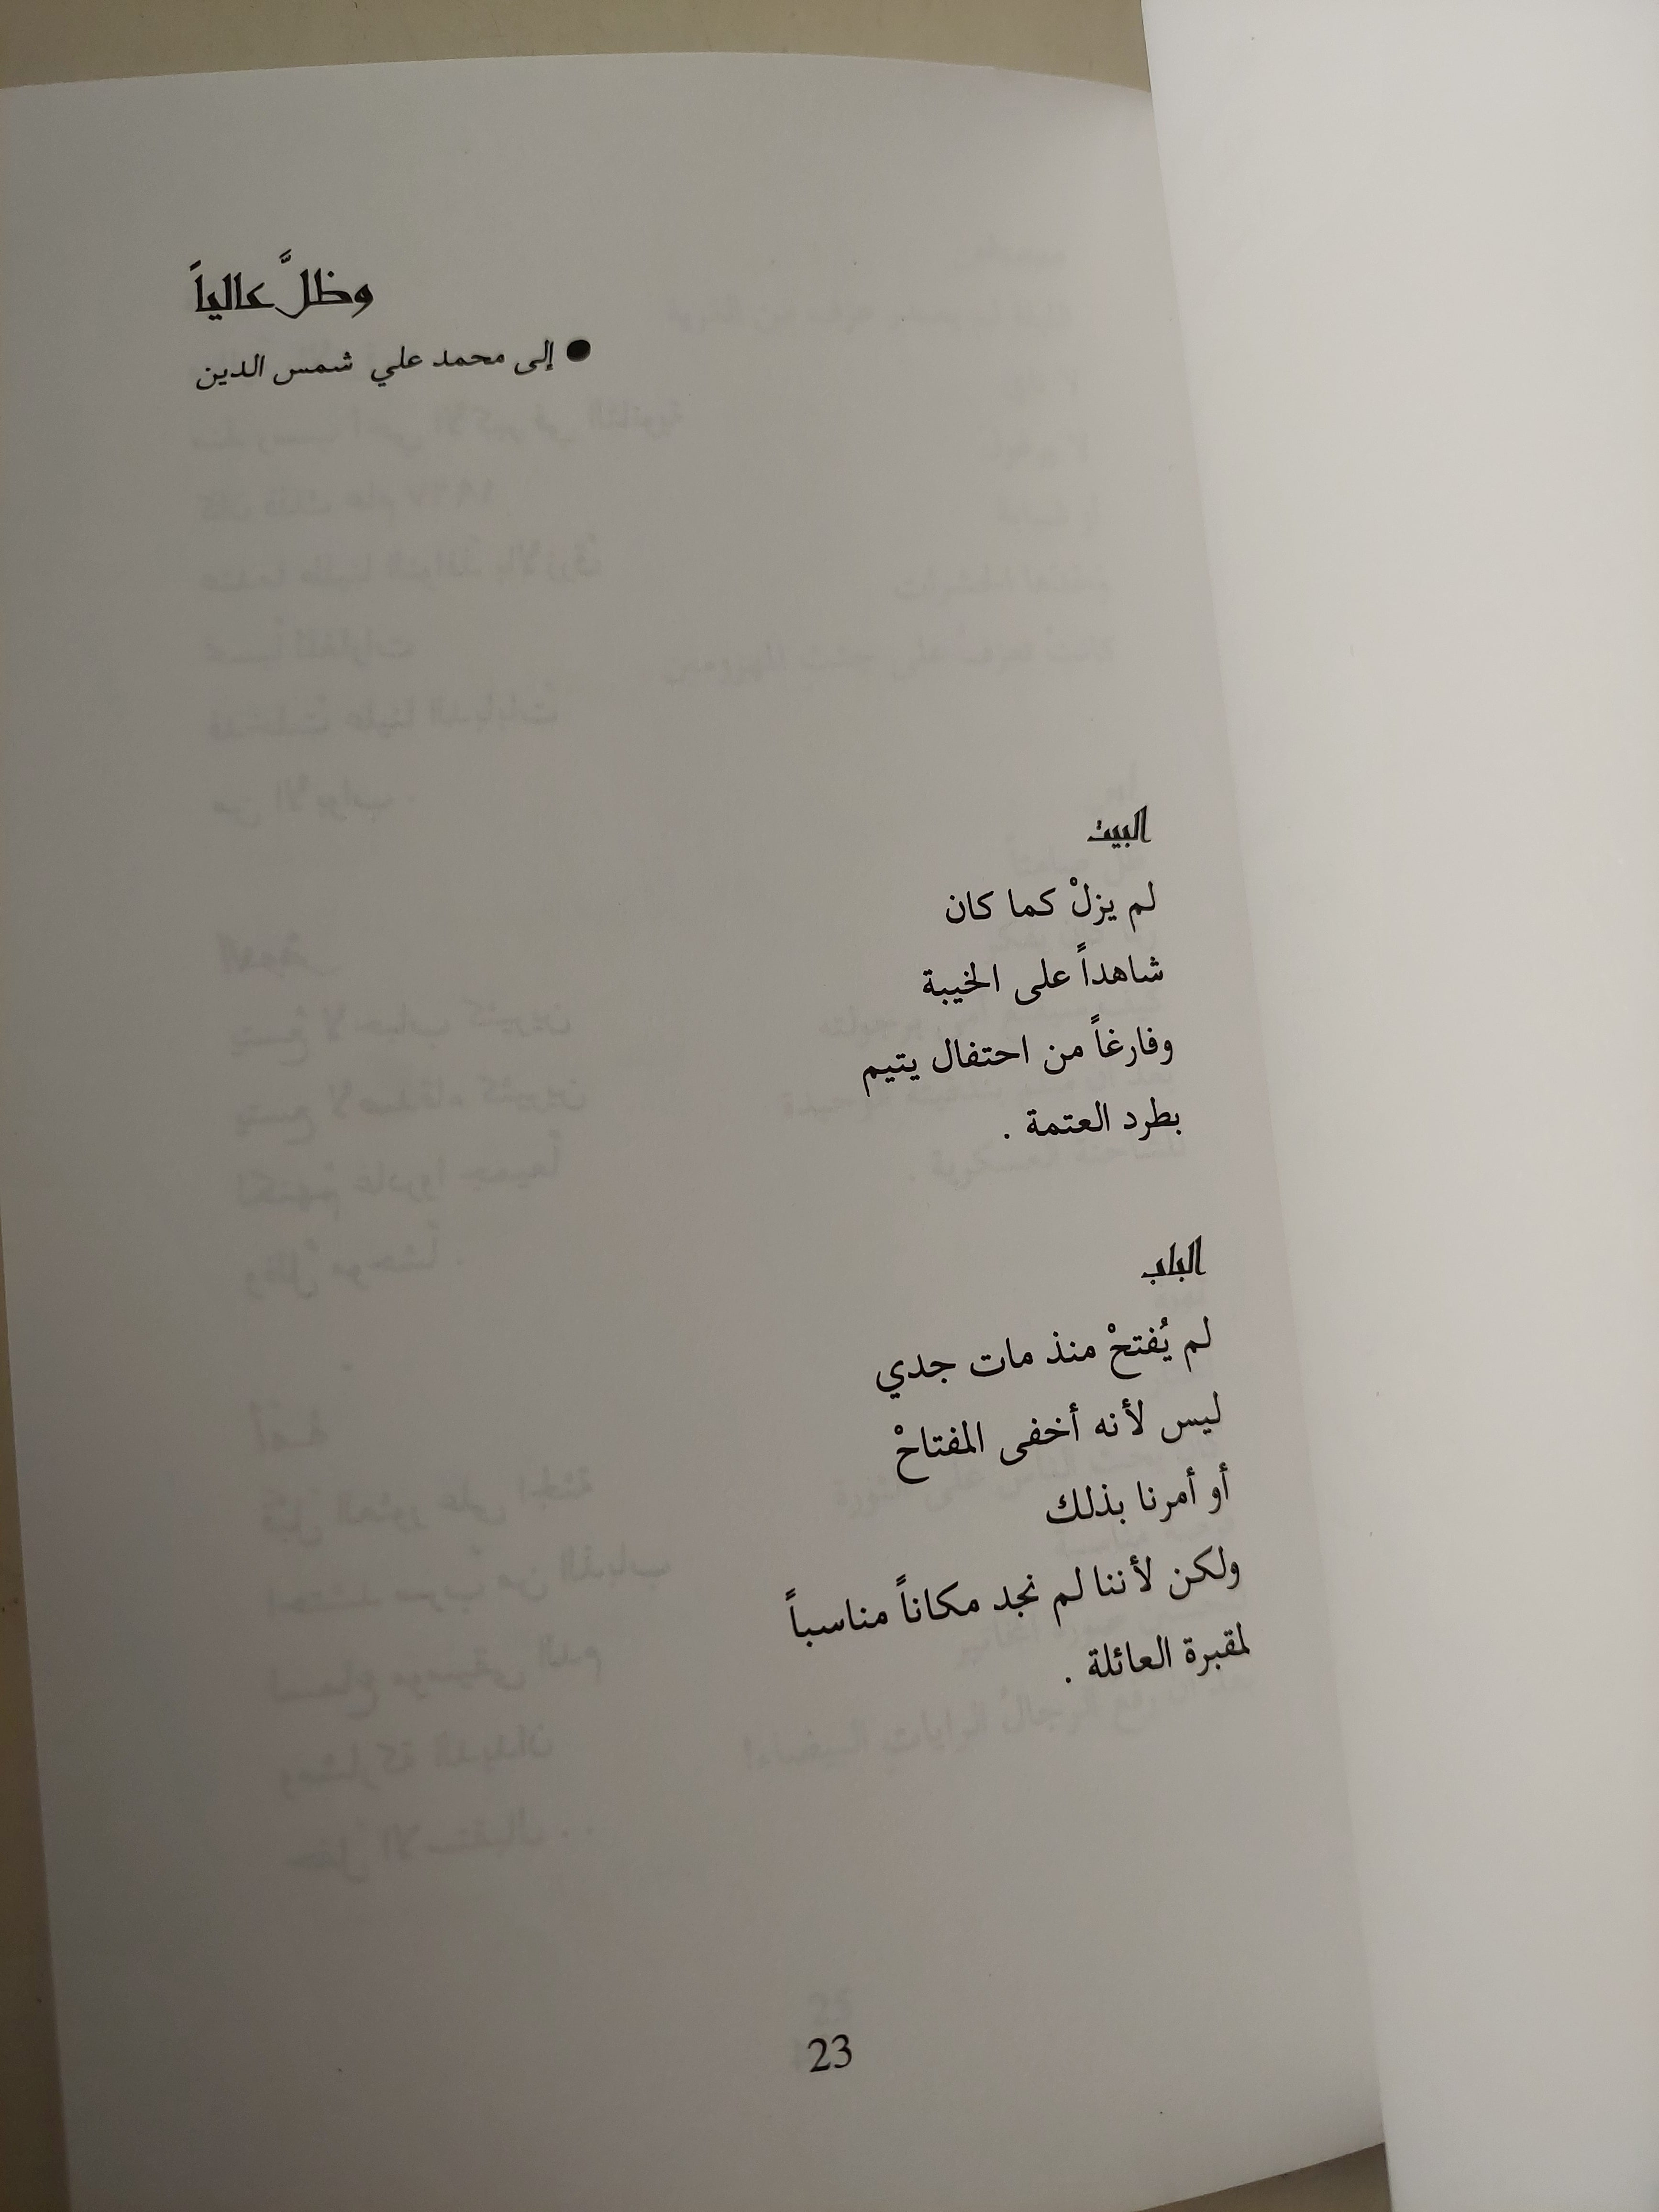 وظلَّ عالياً
● إلى محمد علي شمس الدين
البيت
لم يزلْ كما كان
شاهداً على الخيبة
وفارغاً من احتفال يتيم
بطرد العتمة .
الباب
لم يُفتحْ منذ مات جدي
ليس لأنه أخفى المفتاحْ
أو أمرنا بذلك
ولكن لأننا لم نجد مكاناً مناسباً
لمقبرة العائلة .
23